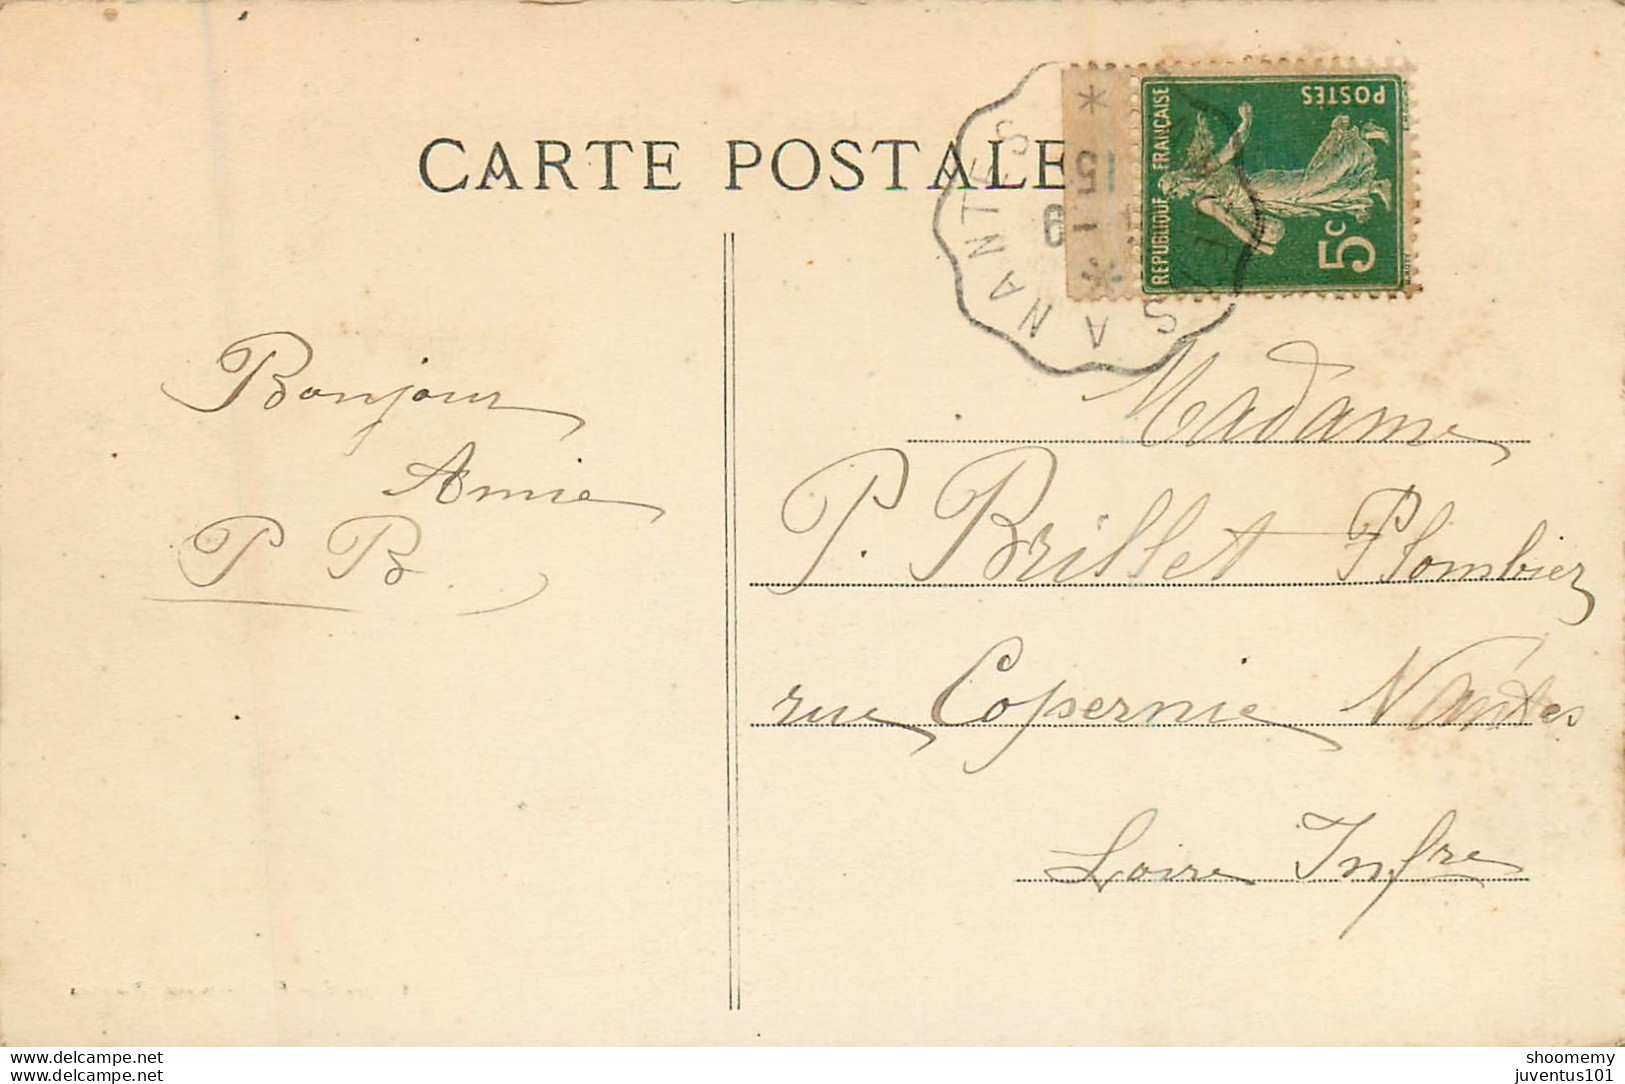 CARTE POSTALE
REPUBLIQUE FRANÇAISE
POSTES
5c
A NANTES
15
9
Bonjour
Amie
P B
Madame
P. Brillet Plombier
rue Copernie Nantes
Loire Infre
www.delcampe.net
www.delcampe.net
shoomemy
juventus101